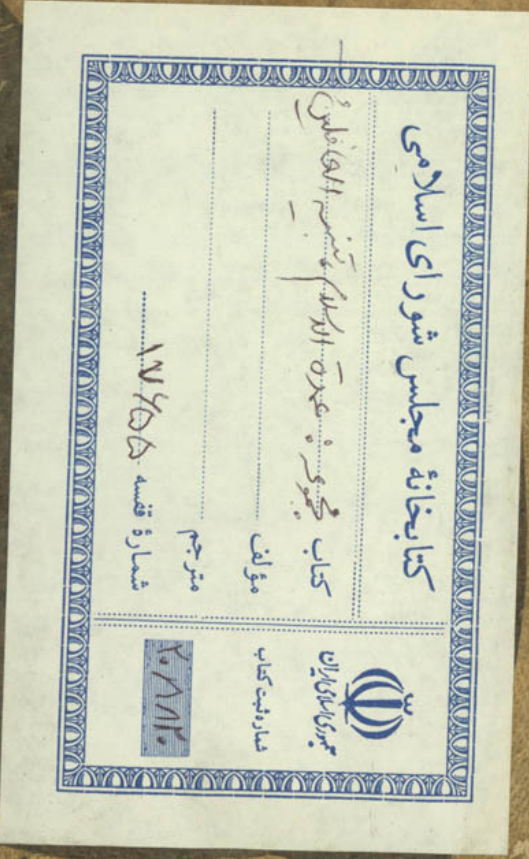 کتابخانهٔ مجلس شورای اسلامی
کتاب مجموعه: عمدة الاسلام، تنبیه الغافلین
مؤلف
مترجم
شمارهٔ قفسه ۱۷۶۵۵
جمهوری اسلامی ایران
شماره ثبت کتاب
۲۰۸۸۲۰